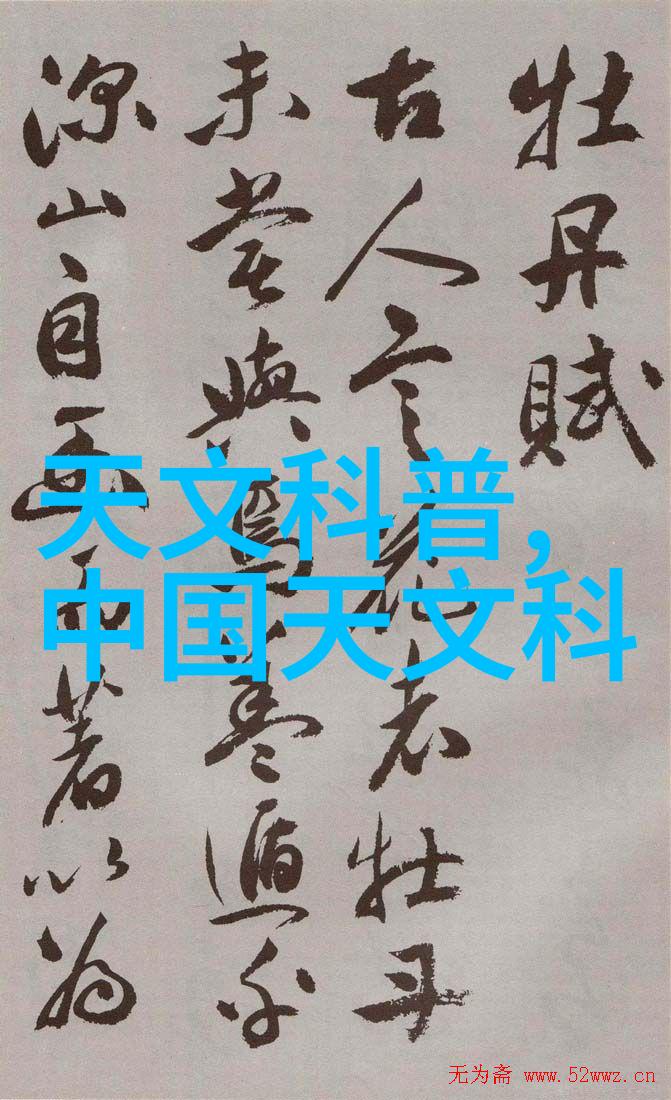 牡丹賦
古人言花者牡丹
未嘗與焉蓋遁乎
深山自幽而著以為
天文科普，
中国天文科
无为斋 www.52wwz.cn